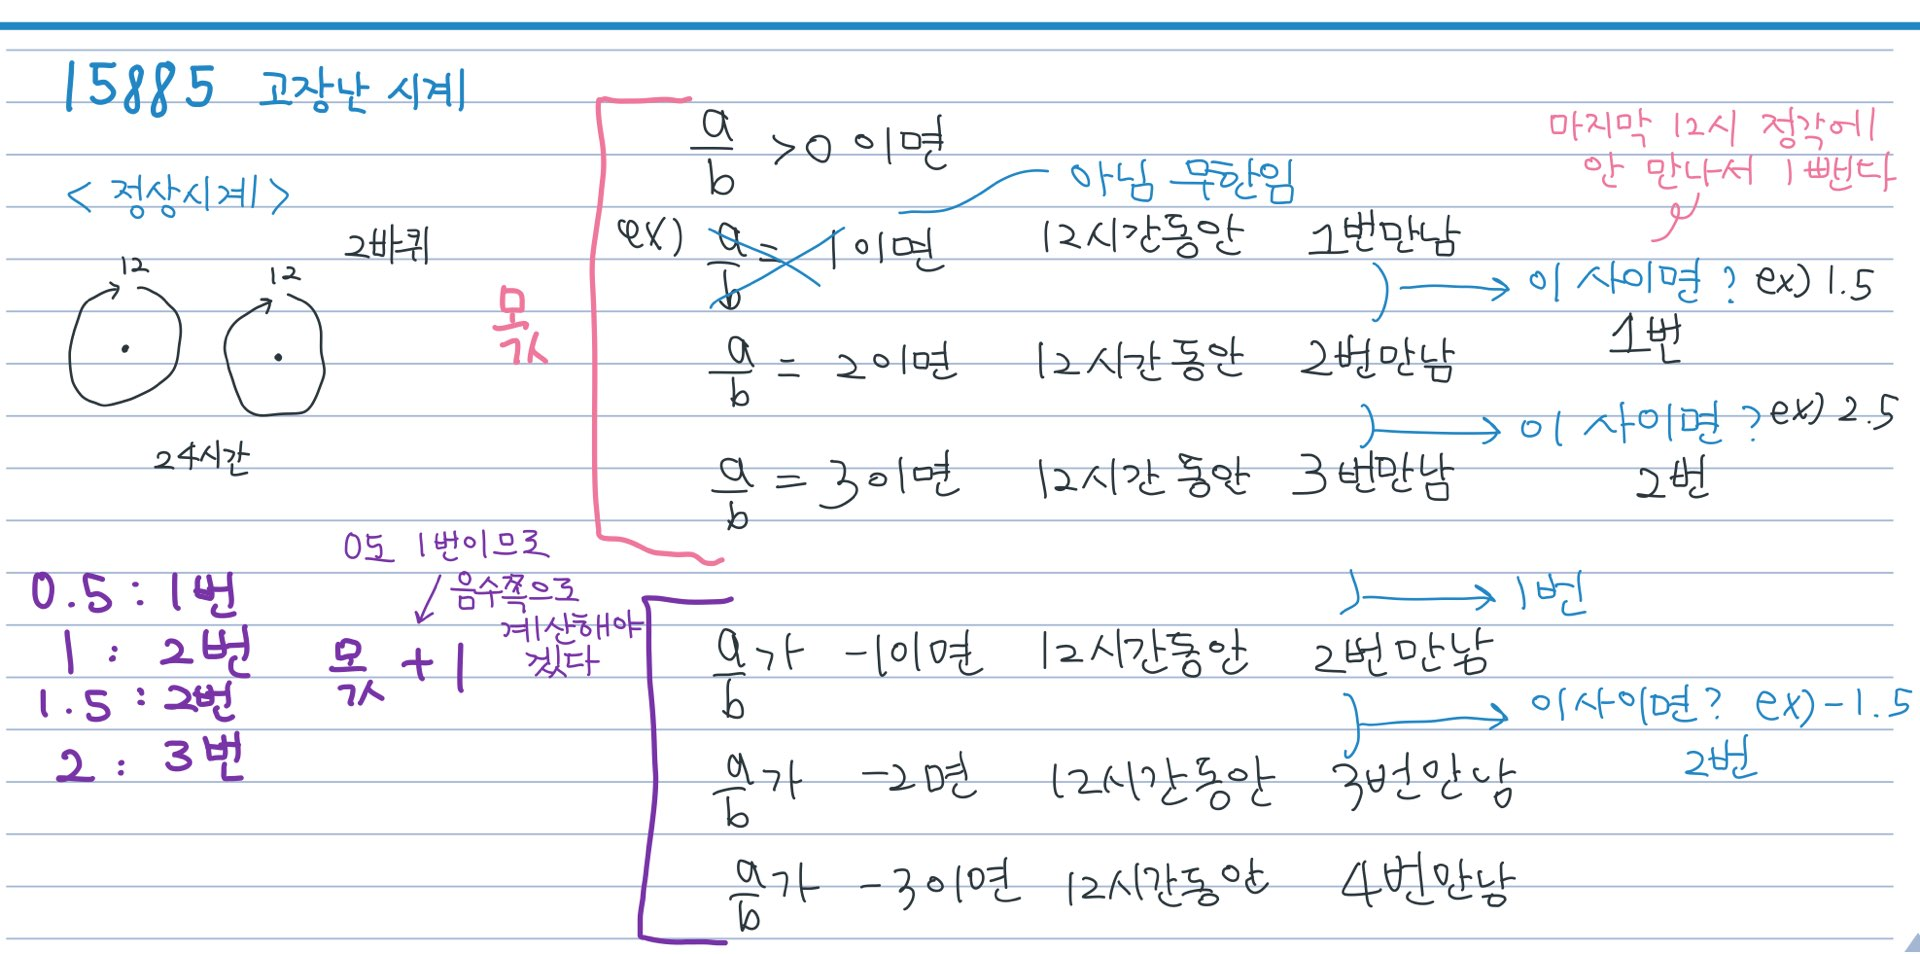 15885 고장난 시계
< 정상시계 >
2바퀴
12
12
24시간
몫
a/b >0 이면
ex) a/b = 1이면 12시간동안 1번만남
아님 무한임
마지막 12시 정각에
안 만나서 1 뺀다
이 사이면? ex) 1.5
1번
a/b = 2이면 12시간동안 2번만남
이 사이면? ex) 2.5
2번
a/b = 3이면 12시간동안 3번만남
0.5 : 1번
1 : 2번
1.5 : 2번
2 : 3번
0도 1번이므로
음수쪽으로
계산해야
겠다
몫 +1
1번
a/b가 -1이면 12시간동안 2번만남
이사이면? ex) -1.5
2번
a/b가 -2면 12시간동안 3번만남
a/b가 -3이면 12시간동안 4번만남